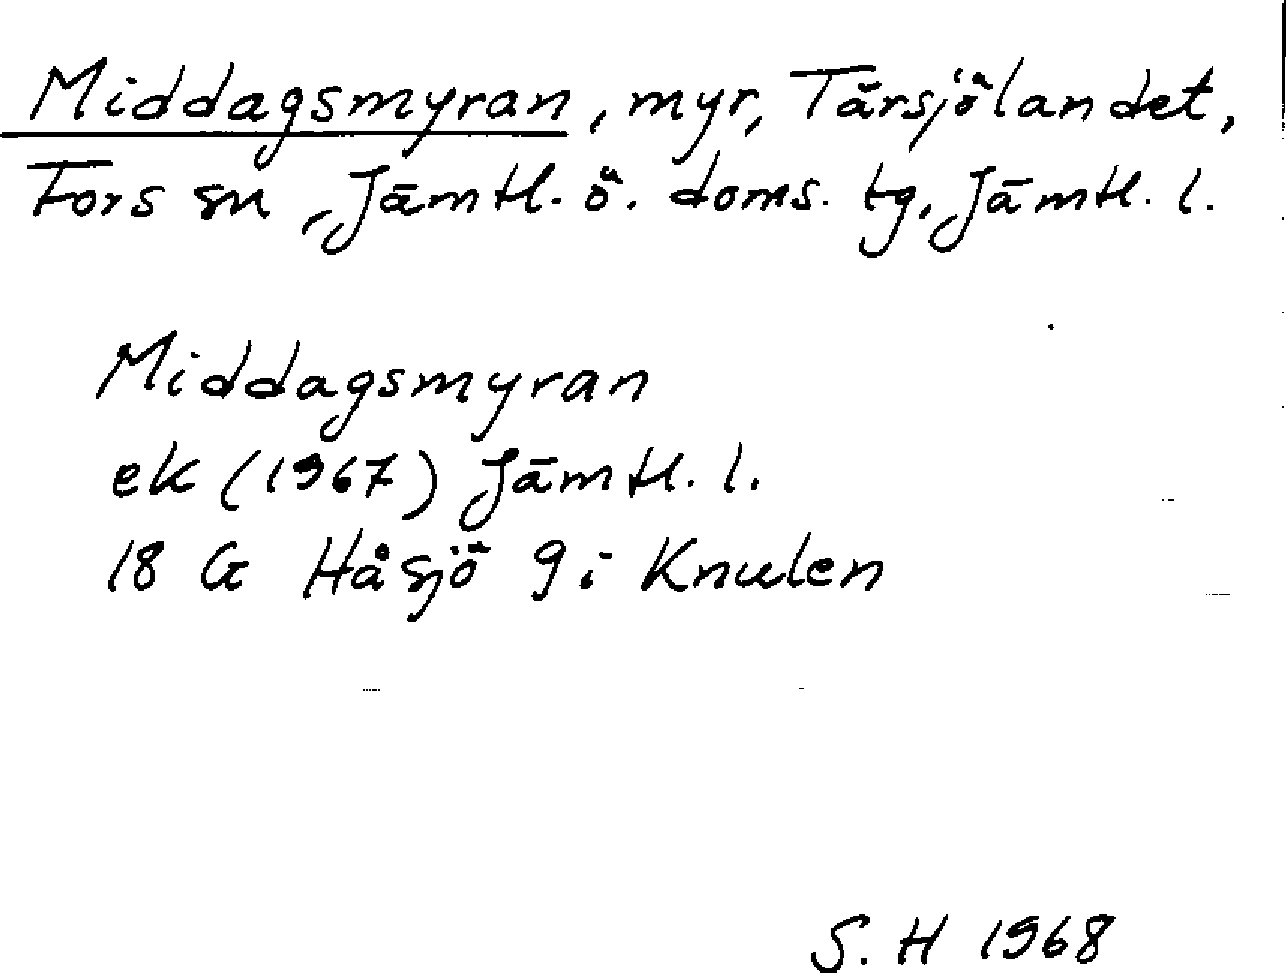 Middagsmyran, myr, Tärsjölandet,
Fors sn, Jämtl. ö. doms. tg, Jämtl. l.
Middagsmyran
ek (1967) Jämtl. l.
18 G Håsjö 9 i Knulen
S. H 1968